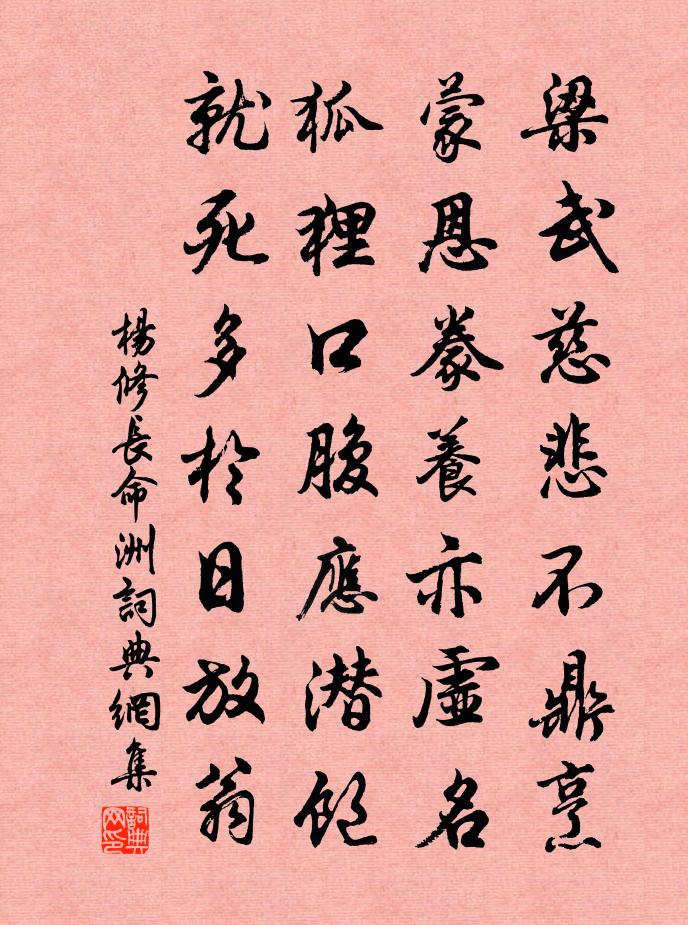 梁武慈悲不鼎烹
蒙恩豢養亦虛名
狐狸口腹應潛飽
就死多於日放翁
楊修長命洲詞典網集
詞典网印